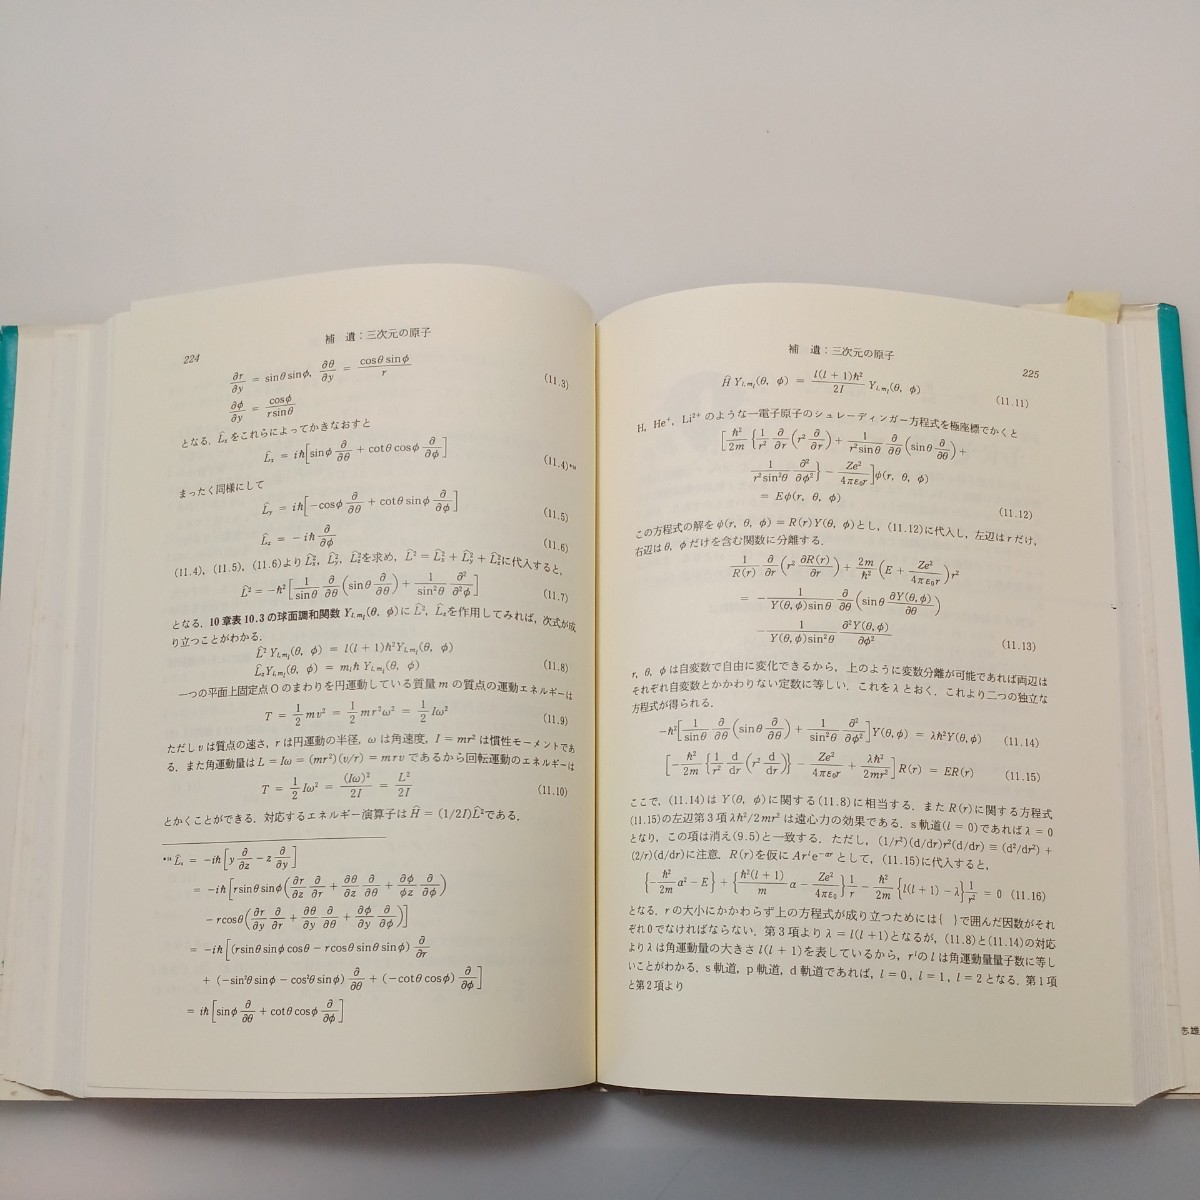 補 遺：三次元の原子
224
∂r/∂y = sinθ sinφ, ∂θ/∂y = cosθ sinφ/r (11.3)
∂φ/∂y = cosφ/r sinθ
となる．L̂ₓをこれらによってかきなおすと
L̂ₓ = iħ[sinφ ∂/∂θ + cotθ cosφ ∂/∂φ] (11.4)
まったく同様にして
L̂y = iħ[−cosφ ∂/∂θ + cotθ sinφ ∂/∂φ] (11.5)
L̂z = −iħ ∂/∂φ (11.6)
(11.4)，(11.5)，(11.6)より L̂ₓ²，L̂y²，L̂z²を求め，L̂² = L̂ₓ² + L̂y² + L̂z²に代入すると，
L̂² = −ħ²[1/sinθ ∂/∂θ (sinθ ∂/∂θ) + 1/sin²θ ∂²/∂²φ] (11.7)
となる．10章表10.3の球面調和関数 Yl,ml(θ, φ)に L̂²，L̂zを作用してみれば，次式が成
り立つことがわかる．
L̂² Yl,ml(θ, φ) = l(l + 1)ħ² Yl,ml(θ, φ)
L̂z Yl,ml(θ, φ) = mlħ Yl,ml(θ, φ) (11.8)
一つの平面上固定点 O のまわりを円運動している質量 m の質点の運動エネルギーは
T = 1/2 mv² = 1/2 mr²ω² = 1/2 Iω² (11.9)
ただし v は質点の速さ，r は円運動の半径，ω は角速度，I = mr² は慣性モーメントであ
る．また角運動量は L = Iω = (mr²)(v/r) = mrv であるから回転運動のエネルギーは
T = 1/2 Iω² = (Iω)²/2I = L²/2I (11.10)
とかくことができる．対応するエネルギー演算子は Ĥ = (1/2I)L̂²である．
L̂ₓ = −iħ[y ∂/∂z − z ∂/∂y]
= −iħ[r sinθ sinφ(∂r/∂z ∂/∂r + ∂θ/∂z ∂/∂θ + ∂φ/φz ∂/∂φ)
− r cosθ(∂r/∂y ∂/∂r + ∂θ/∂y ∂/∂θ + ∂φ/∂y ∂/∂φ)]
= −iħ[(r sinθ sinφ cosθ − r cosθ sinθ sinφ) ∂/∂r
+ (−sin²θ sinφ − cos²θ sinφ) ∂/∂θ + (−cotθ cosφ) ∂/∂φ]
= iħ[sinφ ∂/∂θ + cotθ cosφ ∂/∂φ]
補 遺：三次元の原子
225
Ĥ Yl,ml(θ, φ) = l(l + 1)ħ²/2I Yl,ml(θ, φ) (11.11)
H，He⁺，Li²⁺ のような一電子原子のシュレーディンガー方程式を極座標でかくと
[ħ²/2m {1/r² ∂/∂r (r² ∂/∂r) + 1/r² sinθ ∂/∂θ (sinθ ∂/∂θ) +
1/r² sin²θ ∂²/∂φ²} − Ze²/4πε₀r]ψ(r, θ, φ)
= Eψ(r, θ, φ) (11.12)
この方程式の解を ψ(r, θ, φ) = R(r)Y(θ, φ)とし，(11.12)に代入し，左辺は r だけ，
右辺は θ, φ だけを含む関数に分離する．
1/R(r) ∂/∂r (r² ∂R(r)/∂r) + 2m/ħ² (E + Ze²/4πε₀r)r²
= −1/Y(θ, φ)sinθ ∂/∂θ (sinθ ∂Y(θ, φ)/∂θ)
−1/Y(θ, φ)sin²θ ∂²Y(θ, φ)/∂φ² (11.13)
r, θ, φ は自変数で自由に変化できるから，上のように変数分離が可能であれば両辺は
それぞれ自変数とかかわりない定数に等しい．これを λ とおく．これより二つの独立な
方程式が得られる．
−ħ²[1/sinθ ∂/∂θ (sinθ ∂/∂θ) + 1/sin²θ ∂²/∂φ²]Y(θ, φ) = λħ²Y(θ, φ) (11.14)
[−ħ²/2m {1/r² d/dr (r² d/dr)} − Ze²/4πε₀r + λħ²/2mr²]R(r) = ER(r) (11.15)
ここで，(11.14)は Y(θ, φ)に関する(11.8)に相当する．また R(r)に関する方程式
(11.15)の左辺第3項 λħ²/2mr² は遠心力の効果である．s軌道(l = 0)であれば λ = 0
となり，この項は消え(9.5)と一致する．ただし，(1/r²)(d/dr)r²(d/dr) ≡ (d²/dr²) +
(2/r)(d/dr)に注意．R(r)を仮に Arˡe⁻ᵅʳ として，(11.15)に代入すると，
{−ħ²/2m α² − E} + {ħ²(l + 1)/m α − Ze²/4πε₀}1/r − ħ²/2m {l(l + 1) − λ}1/r² = 0 (11.16)
となる．r の大小にかかわらず上の方程式が成り立つためには{ }で囲んだ因数がそれ
ぞれ0でなければならない．第3項より λ = l(l+1)となるが，(11.8)と(11.14)の対応
より λ は角運動量の大きさ l(l + 1)を表しているから，rˡの l は角運動量量子数に等し
いことがわかる．s軌道，p軌道，d軌道であれば，l = 0，l = 1，l = 2となる．第1項
と第2項より
志雄